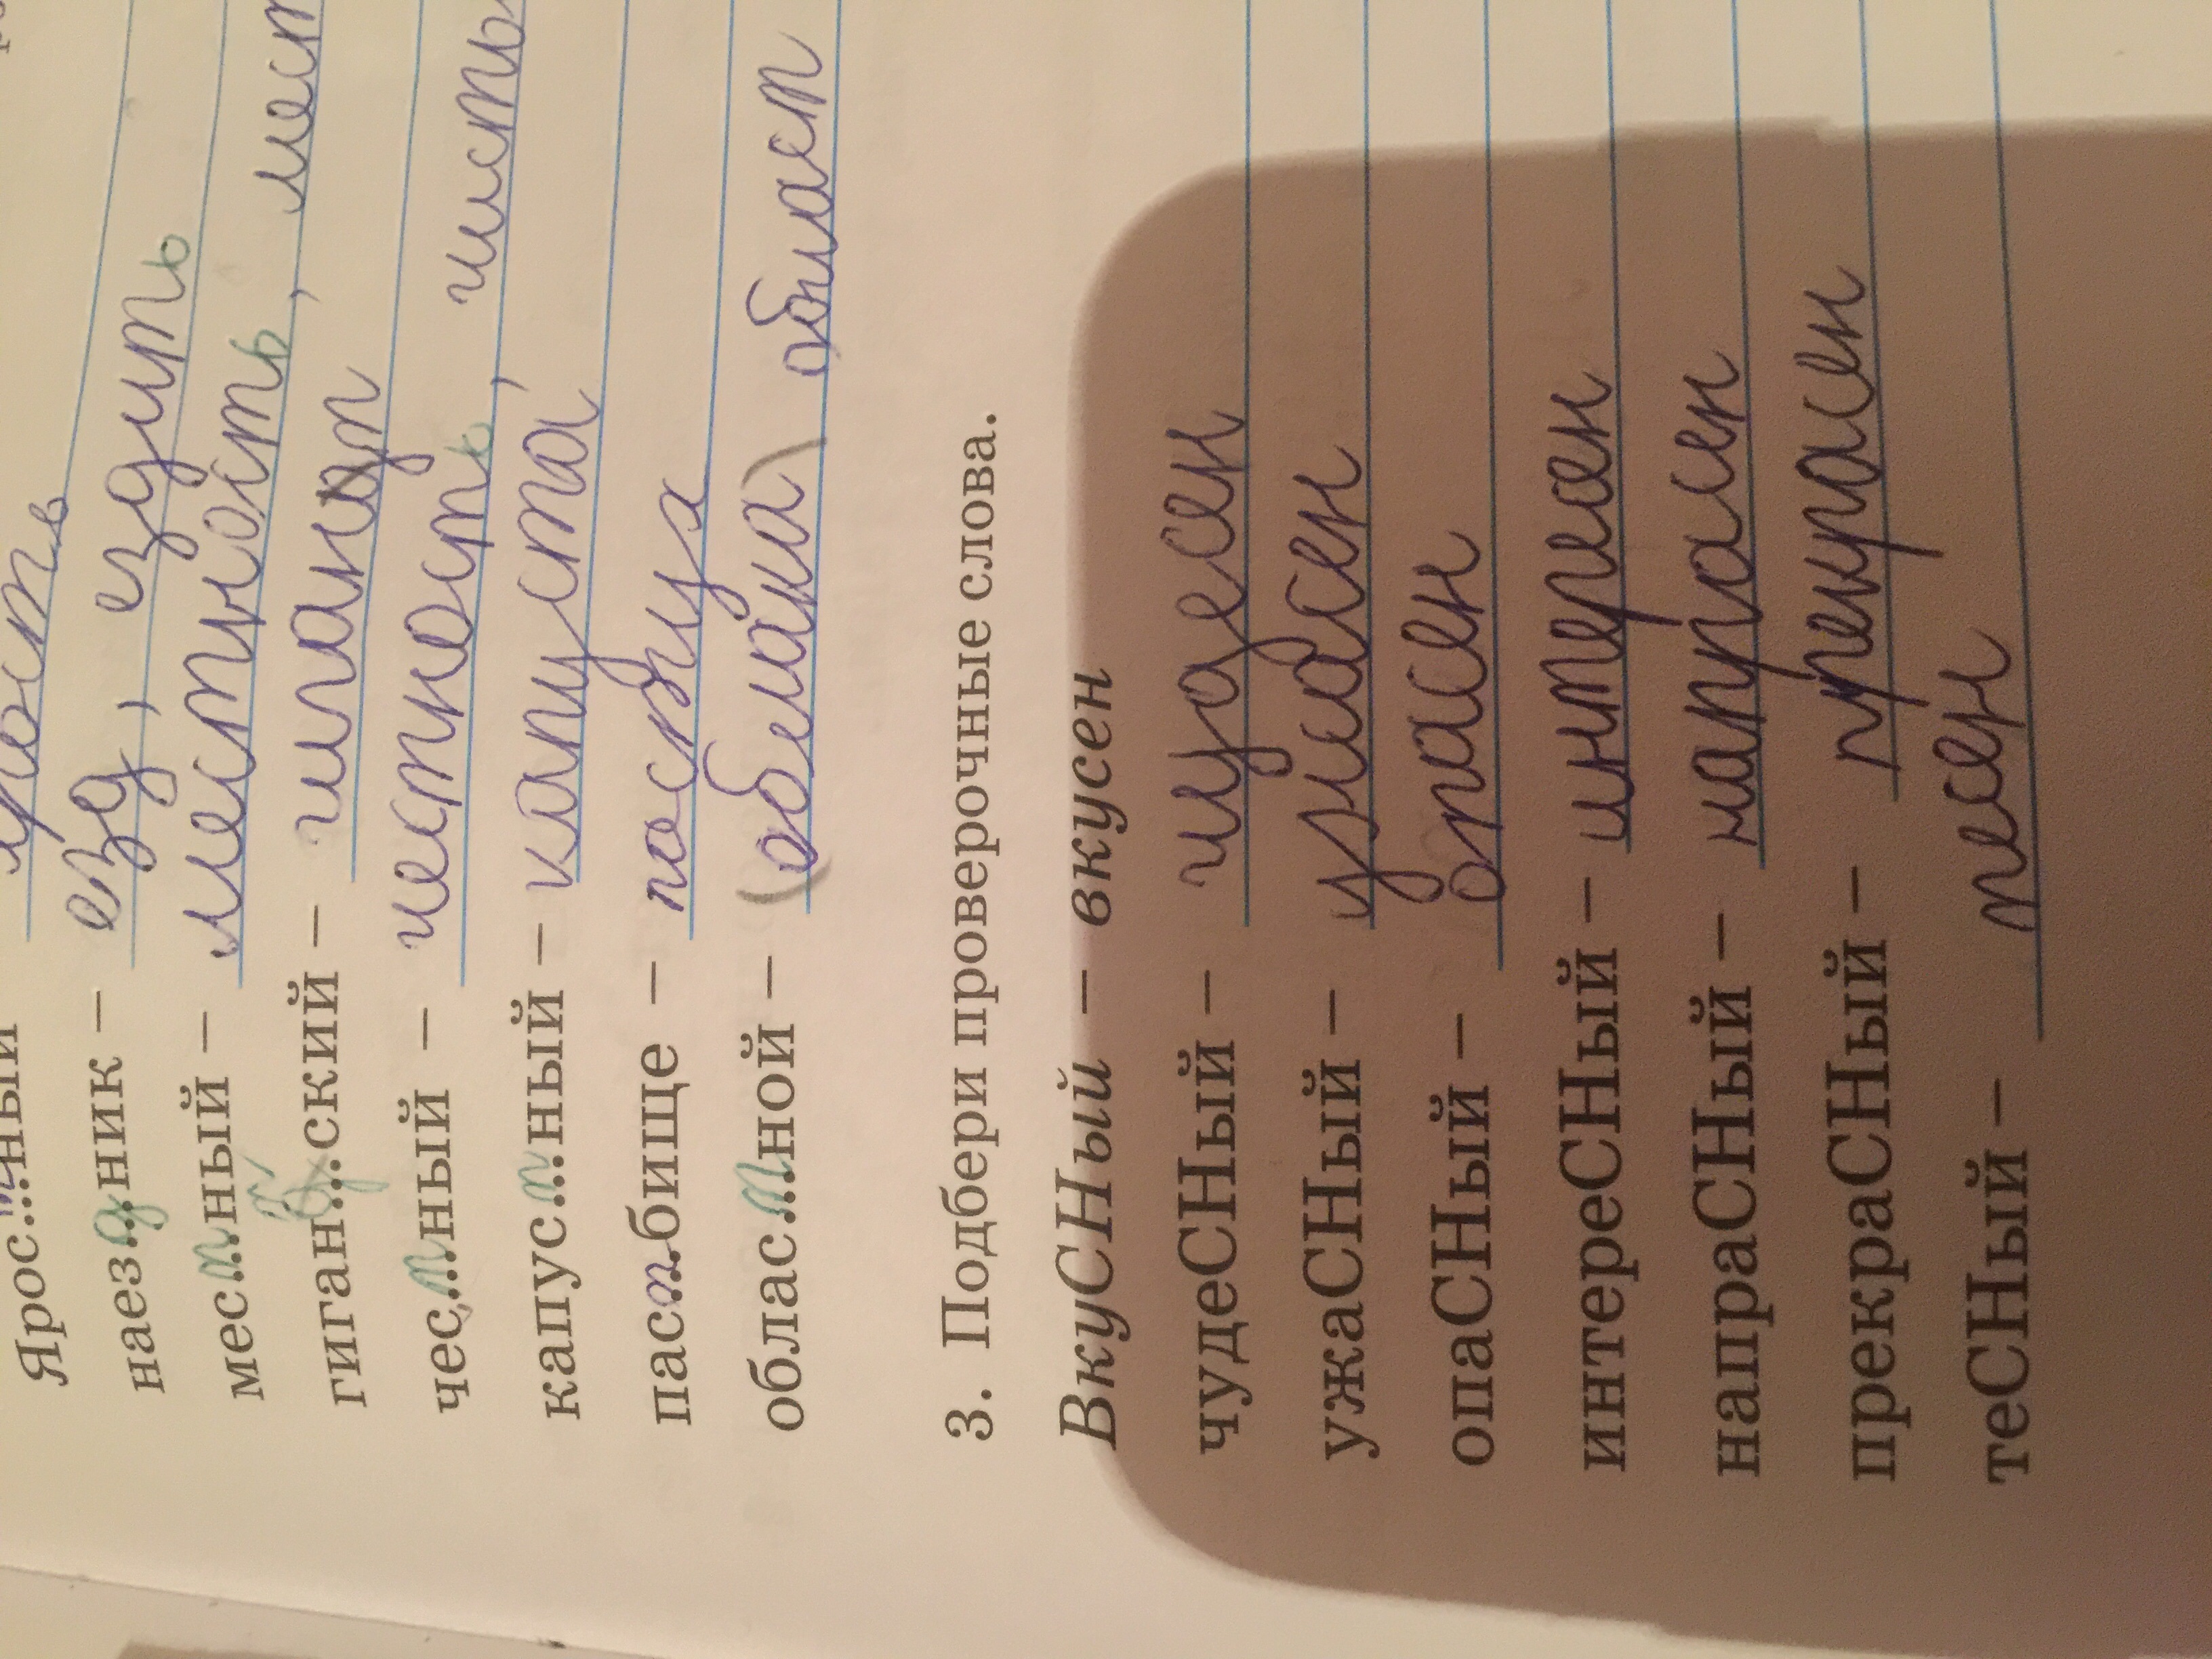 Ярос...ный ярость
наез...ник – езд, ездить
мес...ный – местность, мест
гиган...ский – гигант
чес...ный – честность, чисть
капус...ный – капуста
пас...бище – постух
облас...ной – (облака) област
3. Подбери проверочные слова.
ВкуСНый – вкусен
чудеСНый – чудесен
ужаСНый – ужасен
опаСНый – опасен
интереСНый – интересен
напраСНый – напрасен
прекраСНый – прекрасен
теСНый – тесен